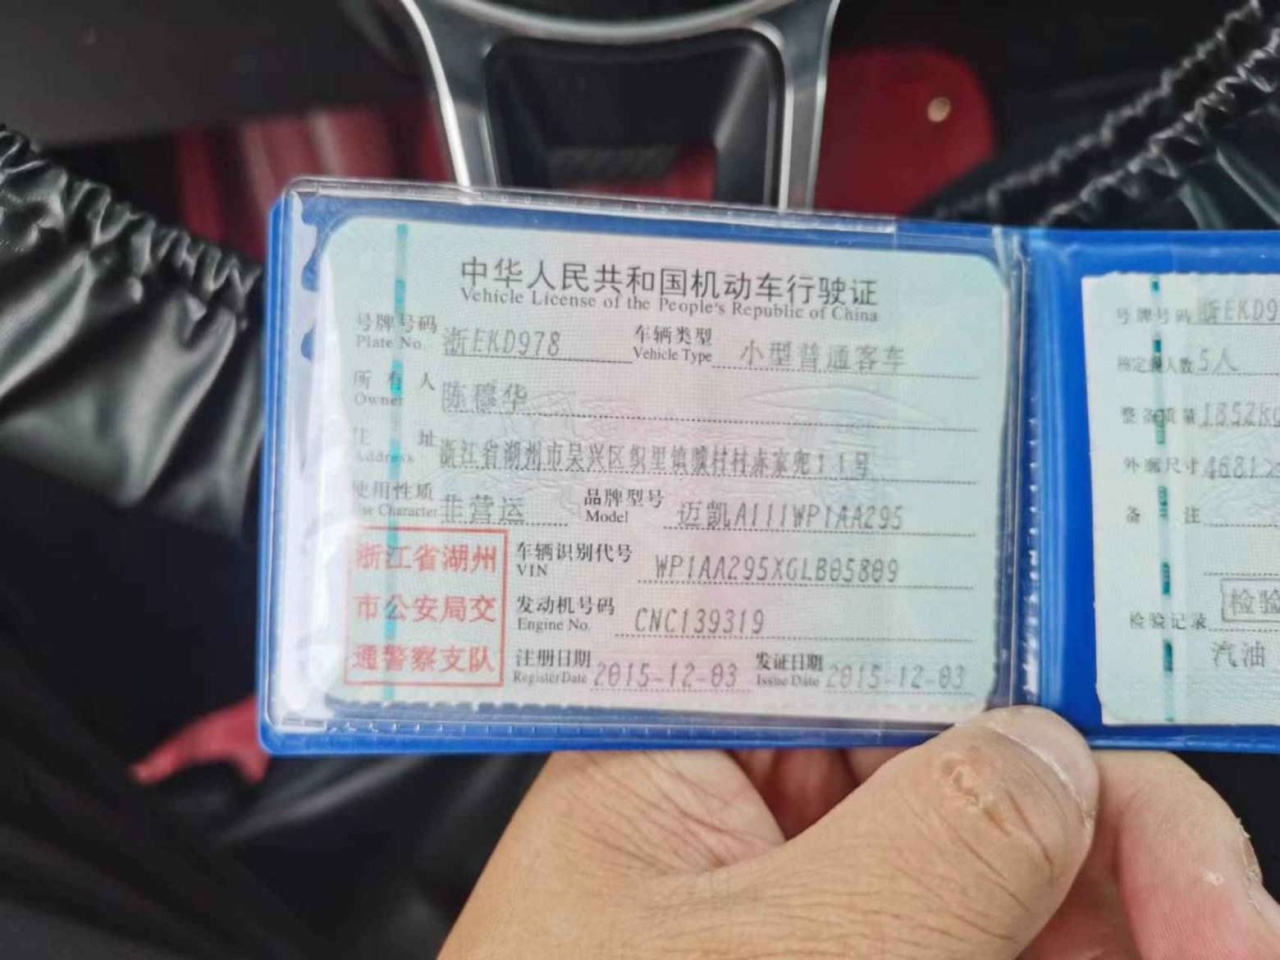 中华人民共和国机动车行驶证
Vehicle License of the People's Republic of China
号牌号码 浙EKD978 车辆类型 小型普通客车
Plate No. Vehicle Type
所有人 陈穗华
Owner
住址 浙江省湖州市吴兴区织里镇骥村村赤家兜11号
Address
使用性质 非营运 品牌型号 迈凯A111WP1AA295
Use Character Model
浙江省湖州
市公安局交
通警察支队
车辆识别代号 WP1AA295XGLB05809
VIN
发动机号码 CNC139319
Engine No.
注册日期 2015-12-03 发证日期 2015-12-03
Register Date Issue Date
号牌号码 浙EKD9
核定载人数 5人
整备质量 1852kg
外廓尺寸 4681×
备注
检验
检验记录
汽油